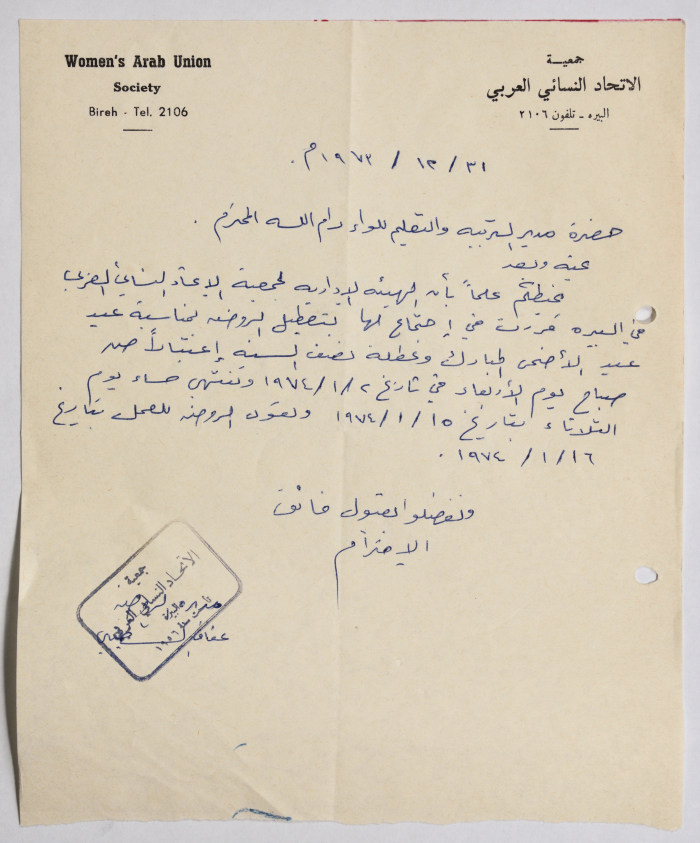 Women's Arab Union
Society
Bireh - Tel. 2106
جمعيـــة
الاتحاد النسائي العربي
البيره ـ تلفون ٢١٠٦
٣١ / ١٢ / ١٩٧٣م.
حضرة مدير التربيه والتعليم للواء رام الله المحترم .
تحيه وبعد
نحيطكم علماً بأن الهيئه الإداريه لجمعية الإتحاد النسائي العربي
في البيره قررت في إجتماع لها بتعطيل الروضه بمناسبة عيد
عيد الأضحى المبارك وعطلة نصف السنه إعتباراً من
صباح يوم الأربعاء في تاريخ ١٩٧٤/١/٢ وتنتهي مساء يوم
الثلاثاء بتاريخ ١٩٧٤/١/١٥ وتعود الروضه للعمل بتاريخ
١٦ / ١ / ١٩٧٤ .
وتفضلوا بقبول فائق
الإحترام
جمعية
الاتحاد النسائي العربي
تأسست سنة ١٩٥٦
مديرة الروضه
عفاف